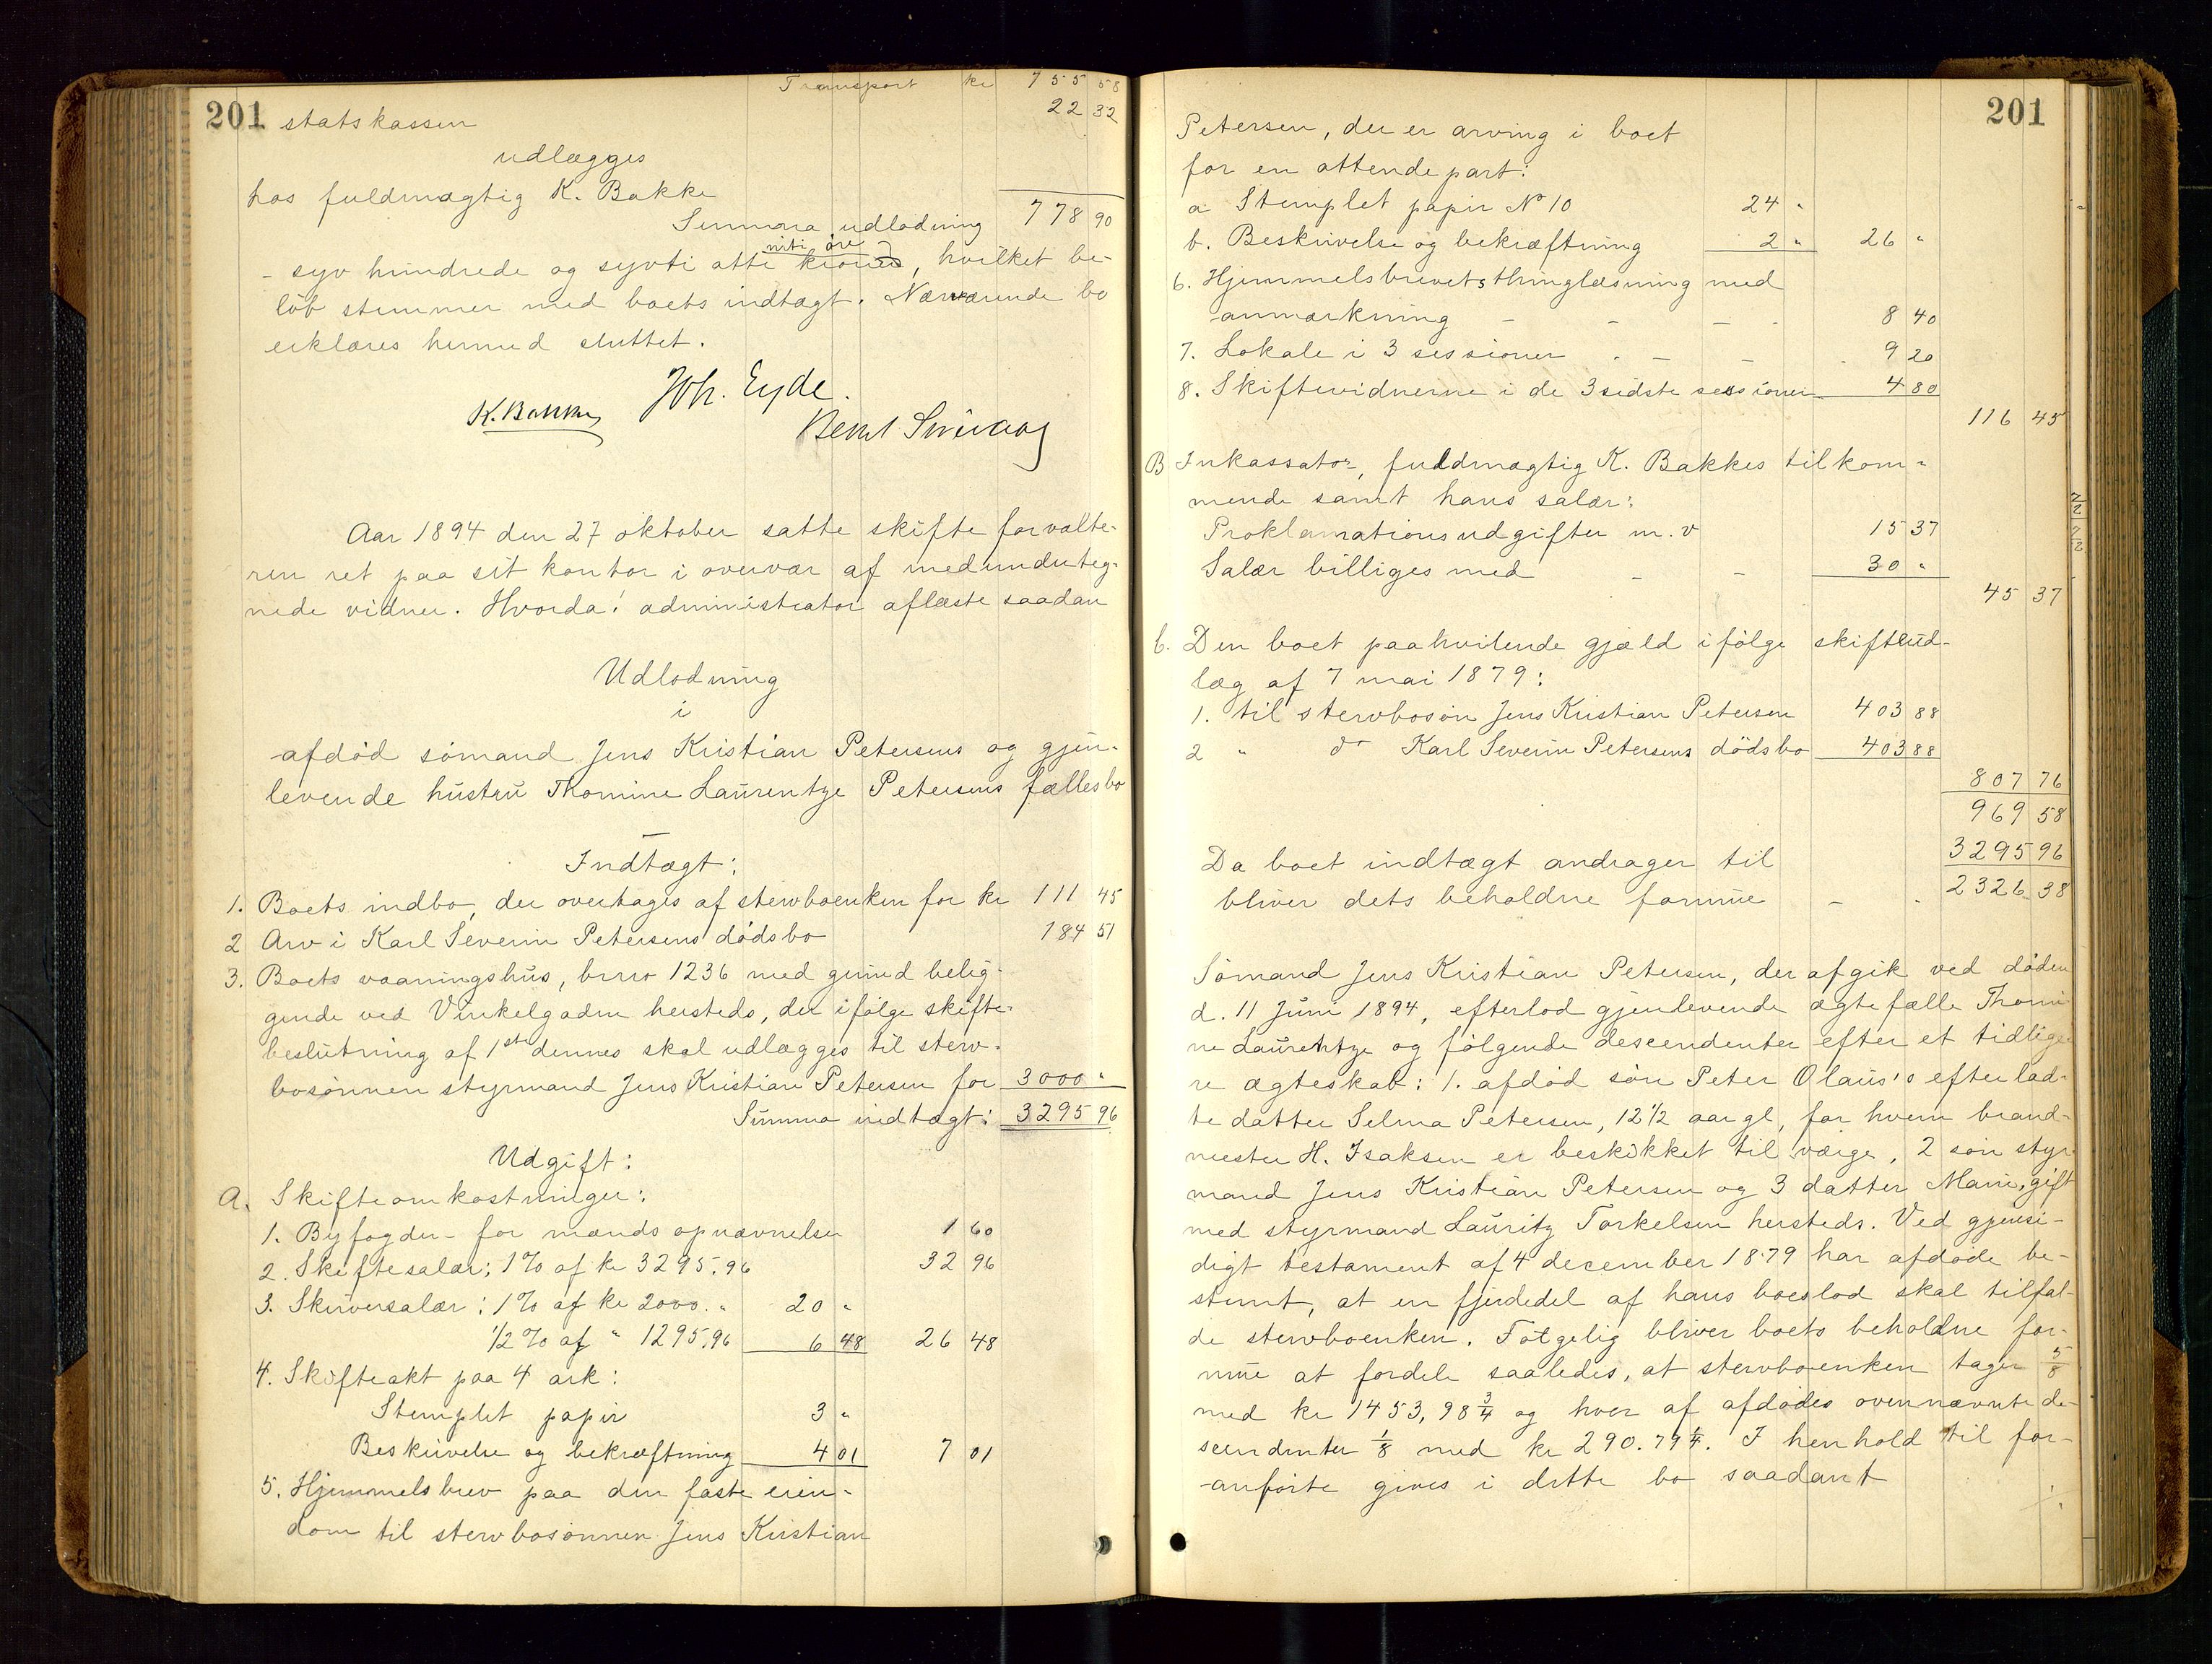 Transport kr 755 58
201 statskassen 22 32
udlægges
hos fuldmægtig K. Bakke
Summa udlodning 778 90
niti øre
- syv hundrede og sytti otte kroner, hvilket be-
løb stemmer med boets indtægt. Nærværende bo
erklæres hermed sluttet.
Joh. Eyde.
K. Bakke
Aar 1894 den 27 oktober satte skifteforvalte-
ren ret paa sit kontor i overvær af medunderteg-
nede vidner. Hvorda! administrator aflæste saadan
Udlodning
i
afdød sømand Jens Kristian Petersens og gjen-
levende hustru Thomine Laurentze Petersens fællesbo
Indtægt:
1. Boets indbo, der overtages af stervboenken for kr 111 45
2 Arv i Karl Severin Petersens dødsbo 184 51
3. Boets vaaningshus, brno 1236 med grund belig-
gende ved Vinkelgaden hersteds, der ifølge skifte-
beslutning af 1ste dennes skal udlægges til sterv-
bosønnen styrmand Jens Kristian Petersen for 3000 "
Summa indtægt: 3295 96
Udgift:
A. Skifteomkostninger:
1. Byfogden for mænds opnævnelse 1 60
2. Skiftesalær: 1% af kr 3295.96 32 96
3. Skriversalær: 1% af kr 2000. " 20 "
1/2% af " 1295.96 6 48 26 48
4. Skifteakt paa 4 ark:
Stemplet papir 3 "
Beskrivelse og bekræftning 4 01 7 01
5. Hjemmelsbrev paa den faste eien-
dom til stervbosønnen Jens Kristian
201
Petersen, der er arving i boet
for en ottendepart:
a Stemplet papir No 10 24 "
b. Beskrivelse og bekræftning 2 " 26 "
6. Hjemmelsbrevets thinglæsning med
anmærkning - - - - 8 40
7. Lokale i 3 sessioner - - - 9 20
8. Skiftevidnerne i de 3 sidste sessioner 4 80
116 45
B Inkassator, fuldmægtig K. Bakkes tilkom-
mende samt hans salær:
Proklamationsudgifter m. v 15 37
Salær billiges med - - 30 "
45 37
C. Den boet paahvilende gjæld ifølge skifteud-
læg af 7 mai 1879:
1. til stervbosøn Jens Kristian Petersen 403 88
2 " do Karl Severin Petersens dødsbo 403 88
807 76
969 58
Da boet indtægt andrager til 3295 96
bliver dets beholdne formue - - 2326 38
Sømand Jens Kristian Petersen, der afgik ved døden
d. 11 Juni 1894, efterlod gjenlevende ægtefælle Thomi-
ne Laurentze og følgende descendenter efter et tidlige-
re ægteskab: 1. afdød søn Peter Olaus's efterlad-
te datter Selma Petersen, 12 1/2 aar gl, for hvem brand-
mester H. Isaksen er beskikket til værge, 2 søn styr-
mand Jens Kristian Petersen og 3 datter Marie, gift
med styrmand Lauritz Torkelsen hersteds. Ved gjensi-
digt testament af 4 december 1879 har afdøde be-
stemt, at en fjerdedel af hans boeslod skal tilfal-
de stervboenken. Følgelig bliver boets beholdne for-
mue at fordele saaledes, at stervboenken tager 5/8
med kr 1453,98 3/4 og hver af afdødes ovennævnte de-
scendenter 1/8 med kr 290.79 1/4. I henhold til for-
anførte gives i dette bo saadant